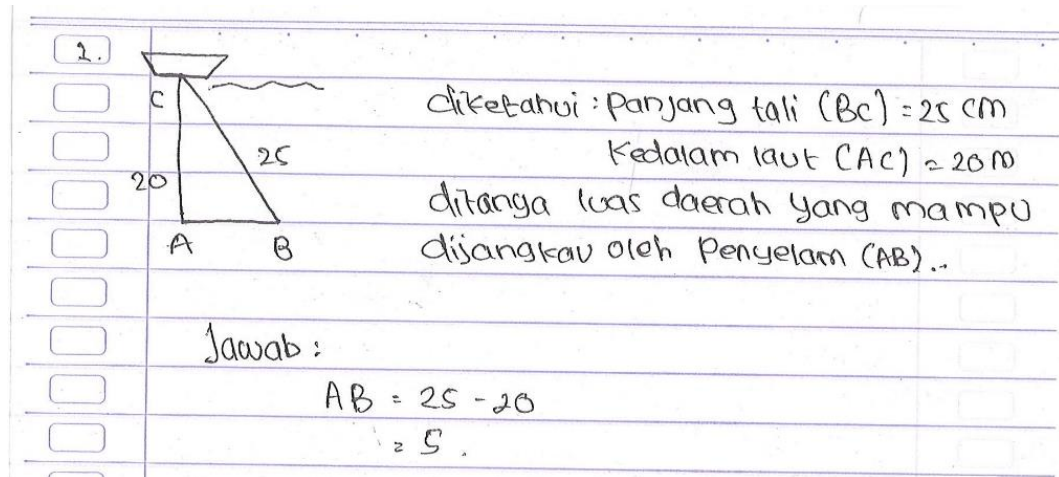 2.
C
25
20
A B
diketahui : panjang tali (BC) = 25 cm
Kedalam laut (AC) = 20 m
ditanya luas daerah yang mampu
dijangkau oleh Penyelam (AB)..
Jawab :
AB = 25 - 20
= 5.